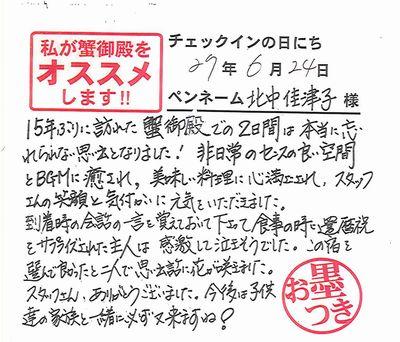 私が蟹御殿を
オススメ
します!!
チェックインの日にち
29年6月24日
ペンネーム 北中佳津子 様
15年ぶりに訪れた蟹御殿での2日間は本当に忘
れられない思い出となりました! 非日常のセンスの良い空間
とBGMに癒され、美味しい料理に心満たされ、スタッフ
さんの笑顔と気付かいに元気をいただきました。
到着時の会話の一言を覚えておいて下って食事の時に還暦祝
をサプライズされた主人は感激して泣きそうでした。この宿を
選んで良かったと二人で思い出話に花が咲きました。
スタッフさん、ありがとうございました。今後は子供
達の家族と一緒に必ず又来ますね?
お墨つき